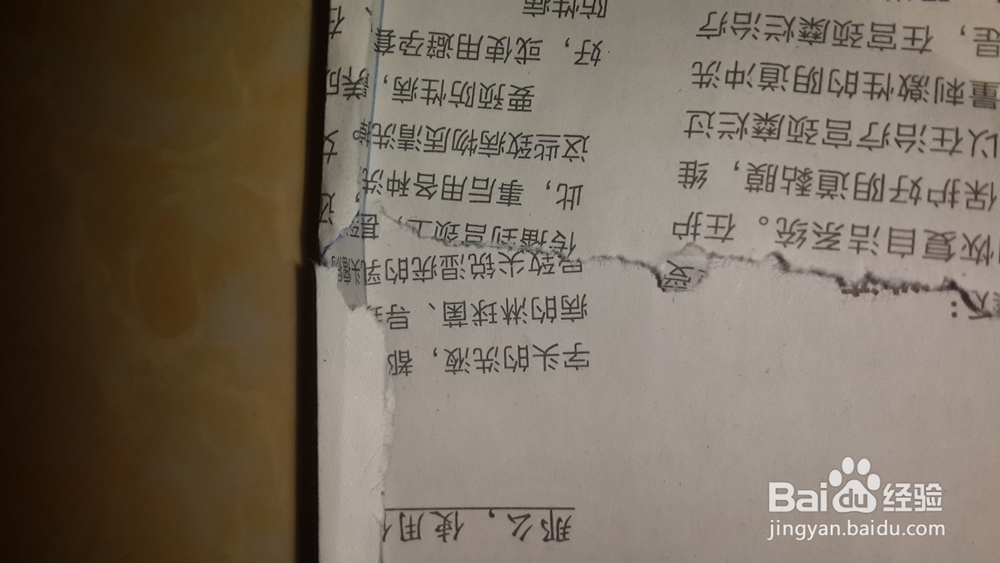 受
恢复自洁系统。在护
保护好阴道黏膜，维
以在治疗宫颈糜烂过
量刺激性的阴道冲洗
是，在宫颈糜烂治疗
那么，使用
字头的洗液，都
病的淋球菌、导
导致尖锐湿疣的乳
传播到宫颈上，甚
此，事后用各种洗，还
这些致病物质清洗
要预防性病，
好，或使用避孕套、在
防性病
Baidu经验
jingyan.baidu.com